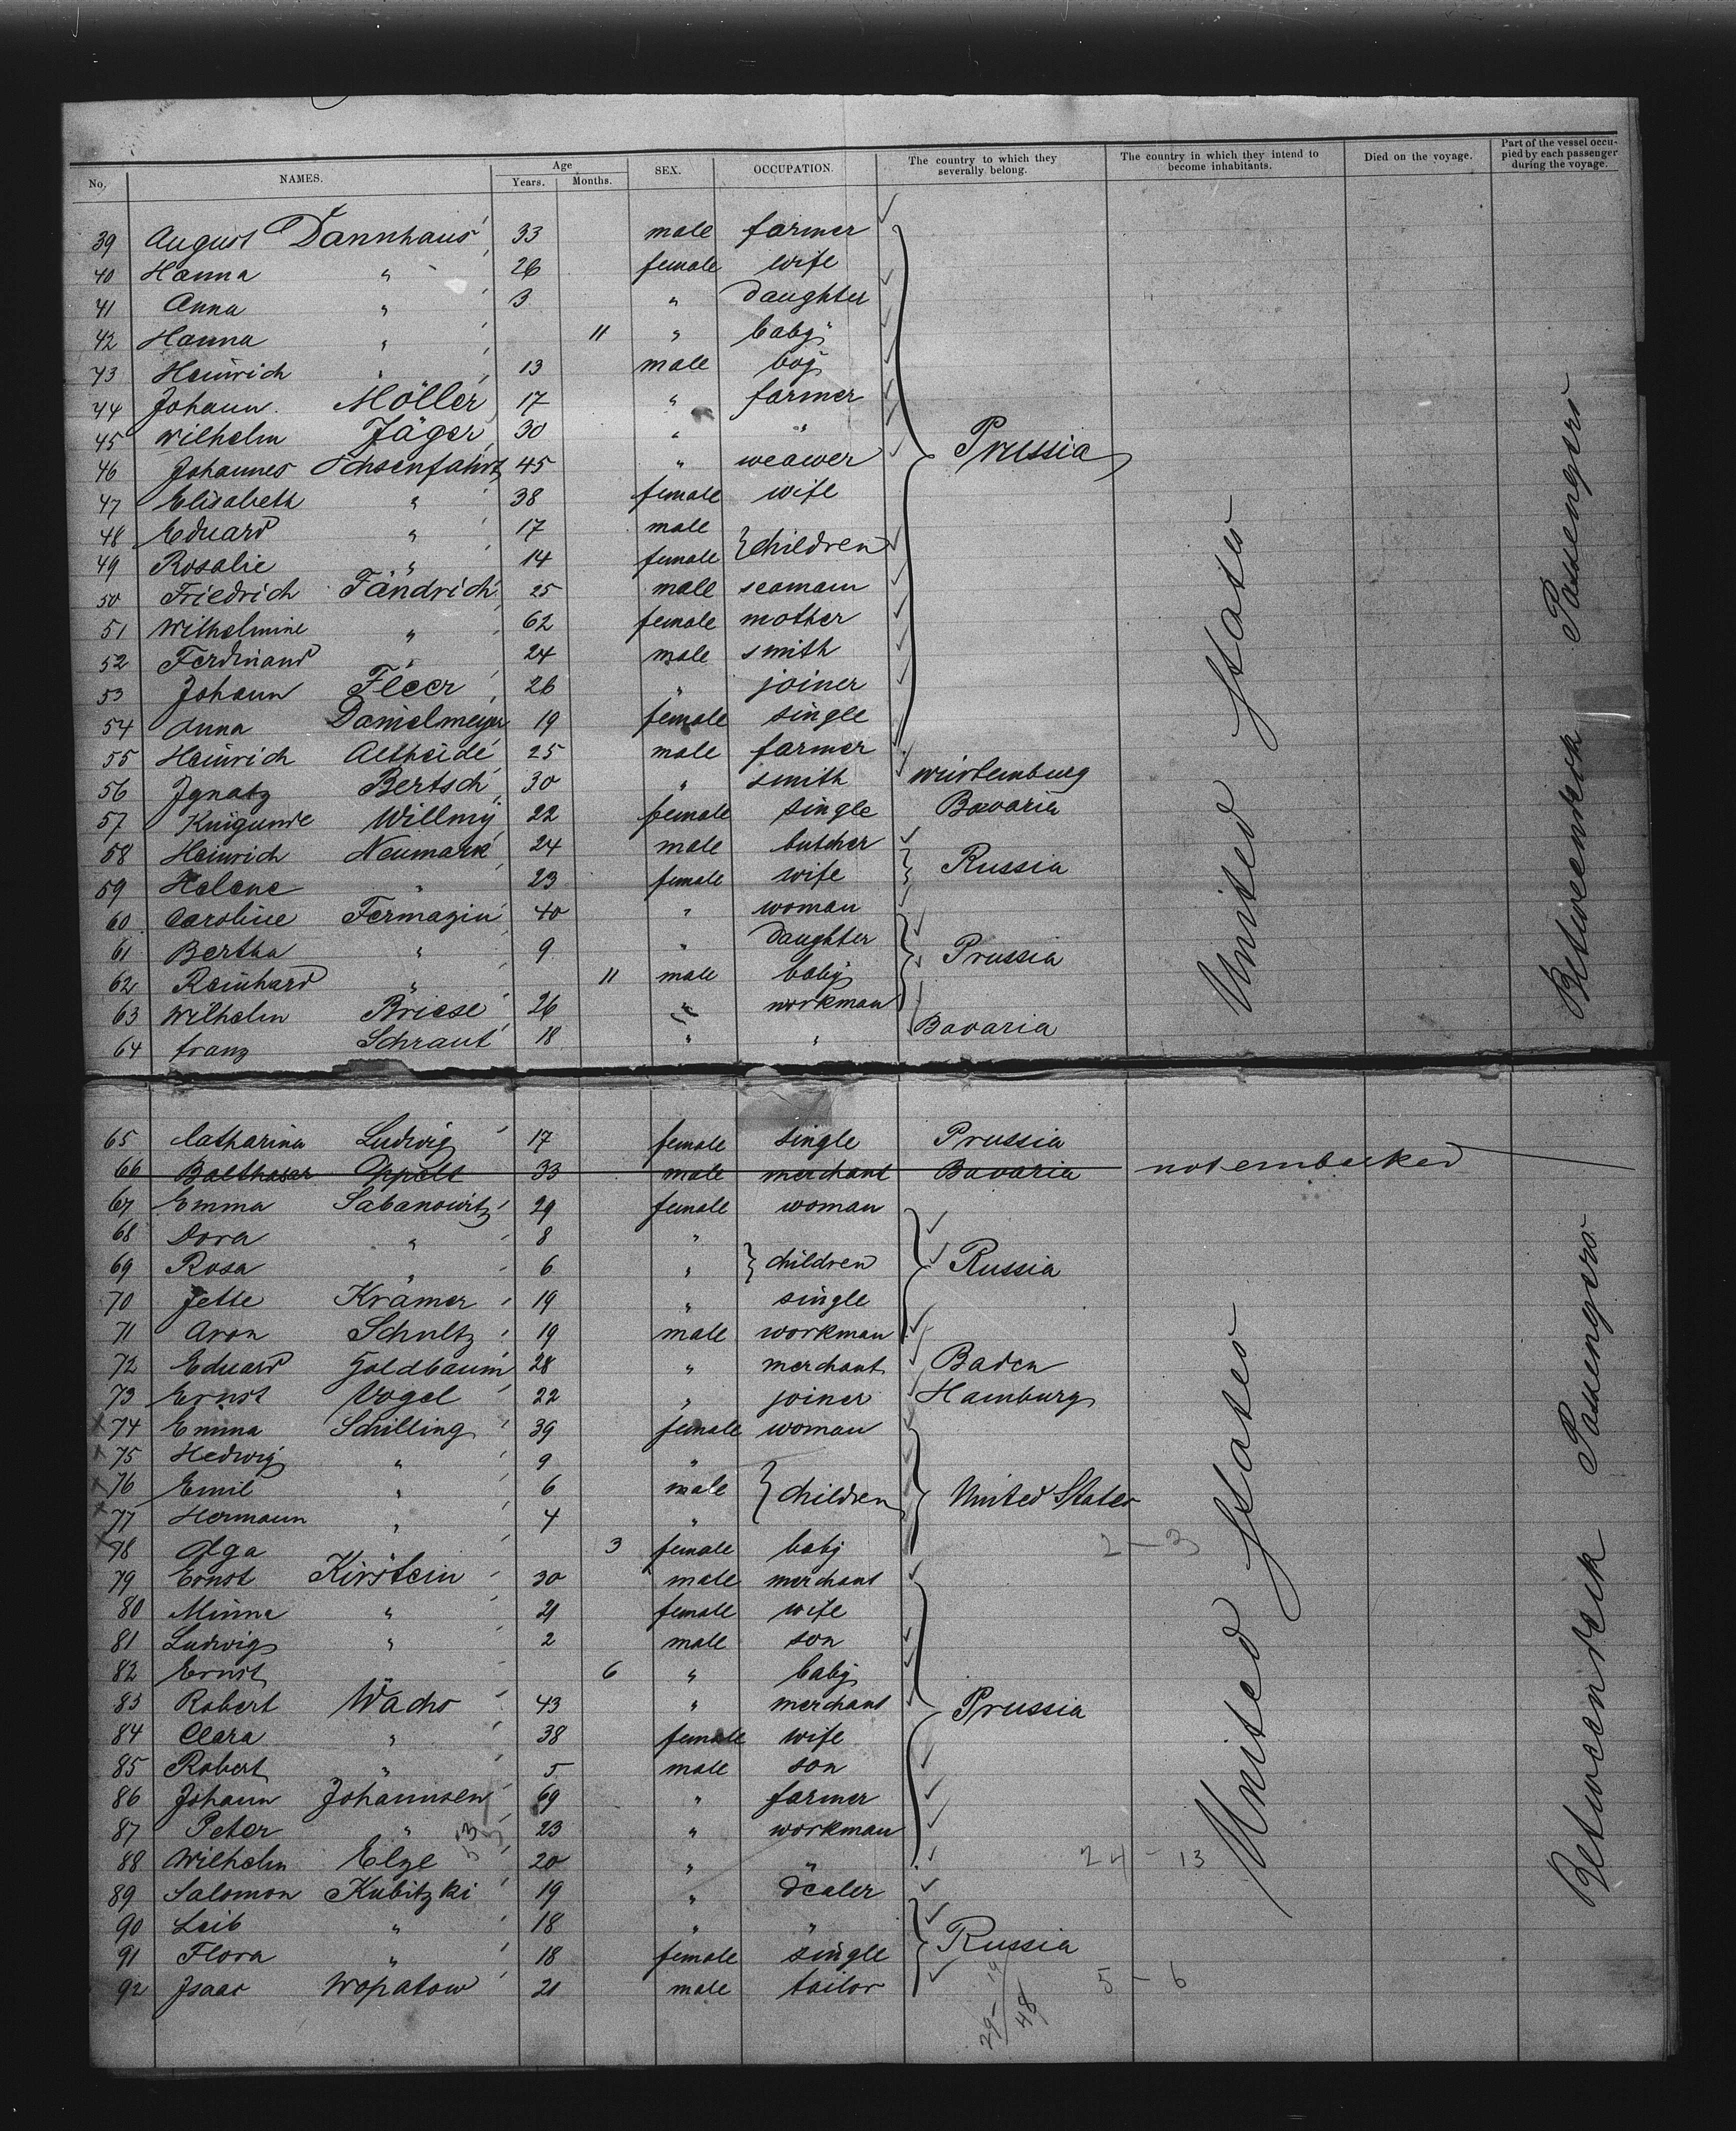 No. NAMES. Age Years. Months. SEX. OCCUPATION. The country to which they severally belong. The country in which they intend to become inhabitants. Died on the voyage. Part of the vessel occupied by each passenger during the voyage.
39 August Dannhaus 33 male farmer
40 Hanna " 26 female wife
41 Anna " 3 " daughter
42 Hanna " 11 " baby
43 Heinrich " 13 male boy
44 Johann Möller 17 " farmer
45 Wilhelm Jäger 30 " "
46 Johannes Ochsenfahrt 45 " weawer Prussia
47 Elisabeth " 38 female wife
48 Eduard " 17 male
49 Rosalie " 14 female } children
50 Friedrich Fändrich 25 male seamann
51 Wilhelmine " 62 female mother
52 Ferdinand " 24 male smith
53 Johann Fleer 26 " joiner
54 Anna Danielmeyer 19 female single
55 Heinrich Altheide 25 male farmer
56 Ignatz Bertsch 30 " smith Würtemburg
57 Kunigunde Willmy 22 female single Bavaria
58 Heinrich Neumark 24 male butcher
59 Helene " 23 female wife Russia
60 Caroline Fermazin 40 " woman
61 Bertha " 9 " daughter
62 Reinhard " 11 male baby Prussia
63 Wilhelm Briese 26 " workman
64 franz Schraut 18 " " Bavaria
United States
Betweendeck Passengers
65 Catharina Ludwig 17 female single Prussia
66 Balthasar Appelt 33 male merchant Bavaria not embarked
67 Emma Sabanowitz 29 female woman
68 Dora " 8 "
69 Rosa " 6 " } children Russia
70 Jette Krämer 19 " single
71 Aron Schultz 19 male workman
72 Eduard Goldbaum 28 " merchant Baden
73 Ernst Vogel 22 " joiner Hamburg
74 Emma Schilling 39 female woman
75 Hedwig " 9 "
76 Emil " 6 male } children United States
77 Hermann " 4 "
78 Olga " 3 female baby 2 - 3
79 Ernst Kirstein 30 male merchant
80 Minna " 21 female wife
81 Ludwig " 2 male son
82 Ernst 6 " baby
83 Robert Wachs 43 " merchant Prussia
84 Clara " 38 female wife
85 Robert " 5 male son
86 Johann Johannsen 69 " farmer
87 Peter " 23 " workman
88 Wilhelm Elze 20 " " 24 - 13
89 Salomon Kubitzki 19 " dealer
90 Leib " 18 " "
91 Flora " 18 female single Russia
92 Isaac Wopatow 21 male tailor 5 - 6
29 - 19 / 48
United States
Betweendeck Passengers